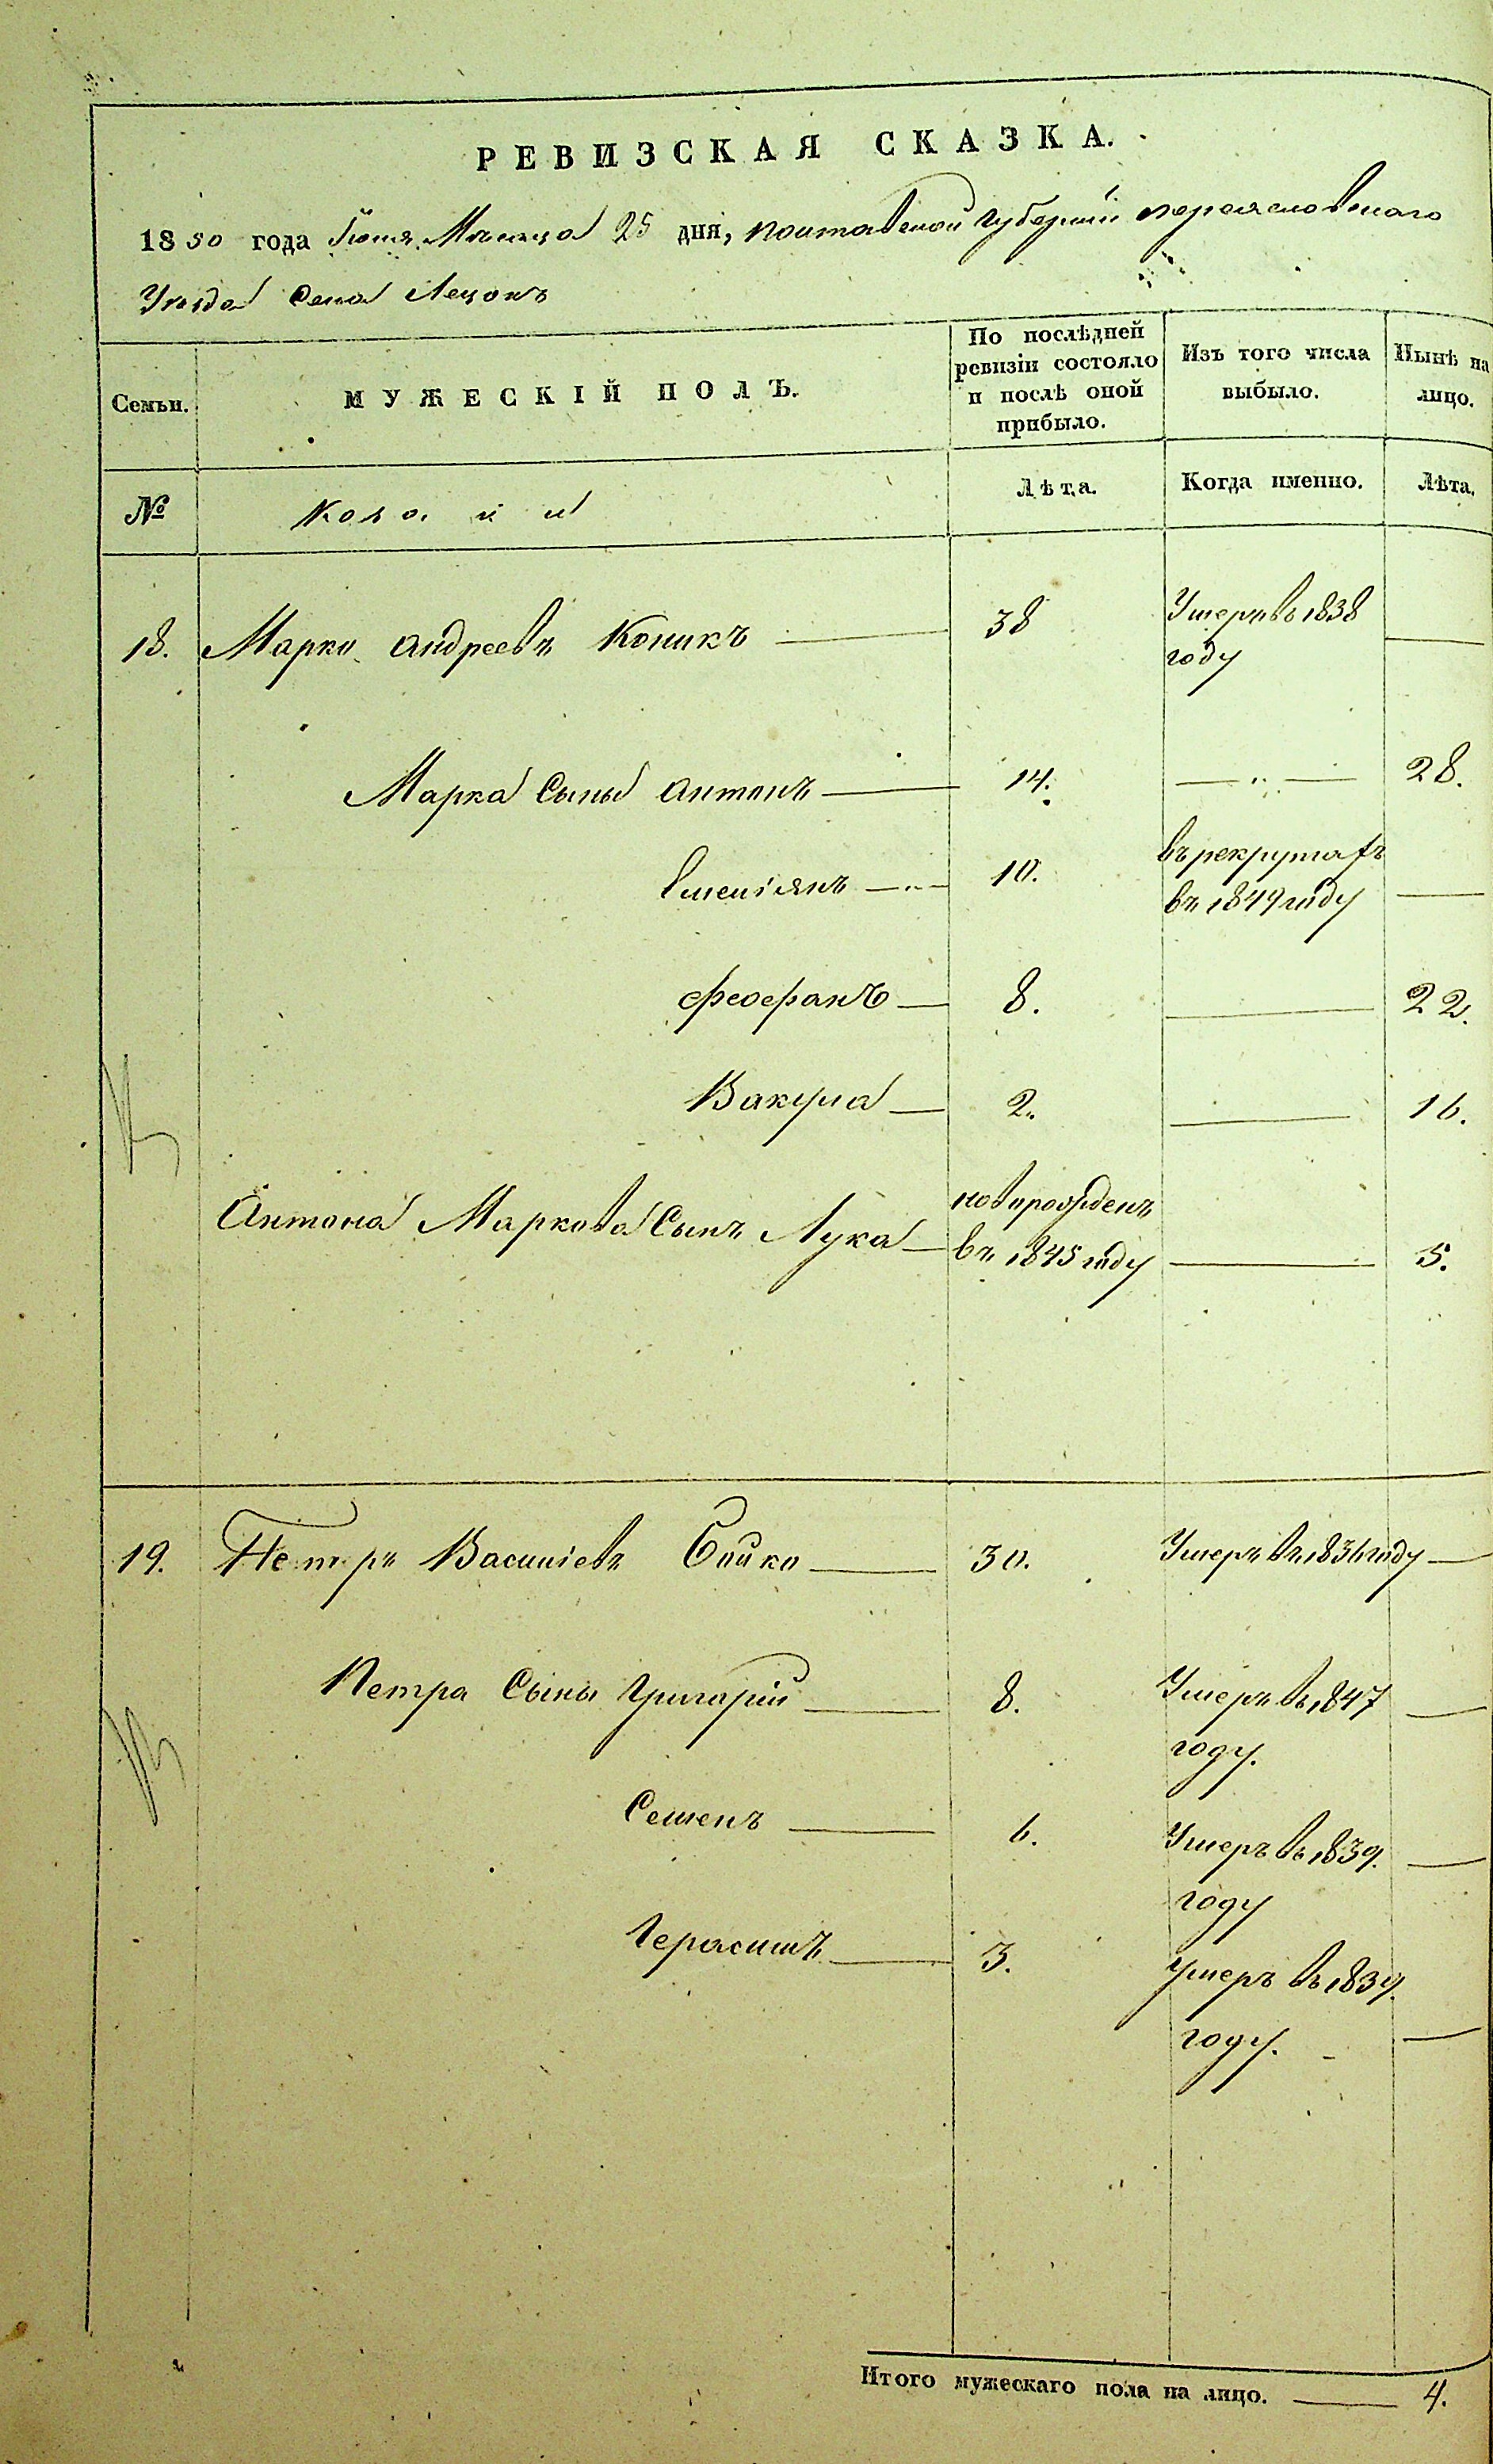 РЕВИЗСКАЯ СКАЗКА.
1850 года Июня Мѣсяца 25 дня, Полтавской Губерніи Переяславскаго
Уѣзда Села Лецокъ
Семьи.
МУЖЕСКІЙ ПОЛЪ.
По послѣдней
ревизіи состояло
и послѣ оной
прибыло.
Изъ того числа
выбыло.
Нынѣ на
лицо.
№
Козаки
Лѣта.
Когда именно.
Лѣта.
18. Марко Андреевъ Коникъ 38 Умеръ въ 1838
году
Марка Сыны Антонъ 14. 28.
Емеліянъ 10. въ рекрутахъ
въ 1849 году
Феофанъ 8. 22.
Вакула 2. 16.
Антона Маркова Сынъ Лука новорожденъ
въ 1845 году 5.
19. Петръ Василіевъ Бойко 30. Умеръ въ 1836 году
Петра Сыны Григорій 8. Умеръ въ 1847
году.
Семенъ 6. Умеръ въ 1839.
году
Герасимъ 3. Умеръ въ 1839.
году.
Итого мужескаго пола на лицо. 4.